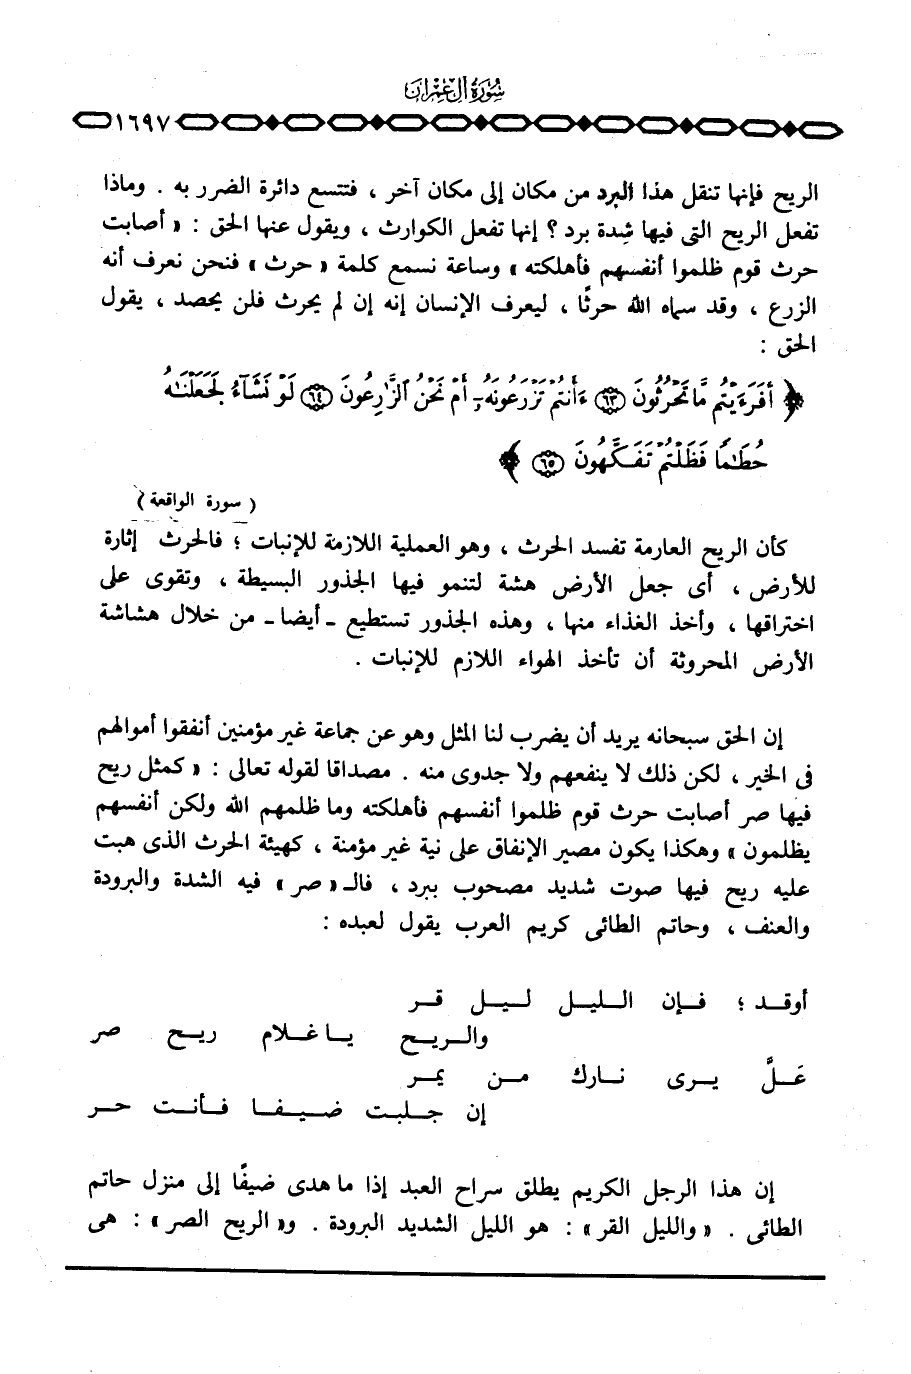 سورة آل عمران
١٦٩٧
الريح فإنها تنقل هذا البرد من مكان إلى مكان آخر ، فتتسع دائرة الضرر به . وماذا
تفعل الريح التى فيها شِدة برد ؟ إنها تفعل الكوارث ، ويقول عنها الحق : « أصابت
حرث قوم ظلموا أنفسهم فأهلكته » وساعة نسمع كلمة « حرث » فنحن نعرف أنه
الزرع ، وقد سماه الله حرثًا ، ليعرف الإنسان إنه إن لم يحرث فلن يحصد ، يقول
الحق :
﴿ أَفَرَءَيْتُم مَّا تَحْرُثُونَ ۝٦٣ ءَأَنتُمْ تَزْرَعُونَهُۥٓ أَمْ نَحْنُ ٱلزَّٰرِعُونَ ۝٦٤ لَوْ نَشَآءُ لَجَعَلْنَٰهُ
حُطَٰمًا فَظَلْتُمْ تَفَكَّهُونَ ۝٦٥ ﴾
( سورة الواقعة )
كأن الريح العارمة تفسد الحرث ، وهو العملية اللازمة للإنبات ؛ فالحرث إثارة
للأرض ، أى جعل الأرض هشة لتنمو فيها الجذور البسيطة ، وتقوى على
اختراقها ، وأخذ الغذاء منها ، وهذه الجذور تستطيع ـ أيضا ـ من خلال هشاشة
الأرض المحروثة أن تأخذ الهواء اللازم للإنبات .
إن الحق سبحانه يريد أن يضرب لنا المثل وهو عن جماعة غير مؤمنين أنفقوا أموالهم
فى الخير ، لكن ذلك لا ينفعهم ولا جدوى منه . مصداقا لقوله تعالى : « كمثل ريح
فيها صر أصابت حرث قوم ظلموا أنفسهم فأهلكته وما ظلمهم الله ولكن أنفسهم
يظلمون » وهكذا يكون مصير الإنفاق على نية غير مؤمنة ، كهيئة الحرث الذى هبت
عليه ريح فيها صوت شديد مصحوب ببرد ، فالـ « صر » فيه الشدة والبرودة
والعنف ، وحاتم الطائى كريم العرب يقول لعبده :
أوقـد ؛ فـإن الـليـل لـيـل قـر
والـريـح يـا غـلام ريـح صر
عَـلَّ يـرى نـارك مـن يمـر
إن جـلبـت ضـيـفـا فـأنـت حـر
إن هذا الرجل الكريم يطلق سراح العبد إذا ما هدى ضيفًا إلى منزل حاتم
الطائى . « والليل القر » : هو الليل الشديد البرودة . و« الريح الصر » : هى